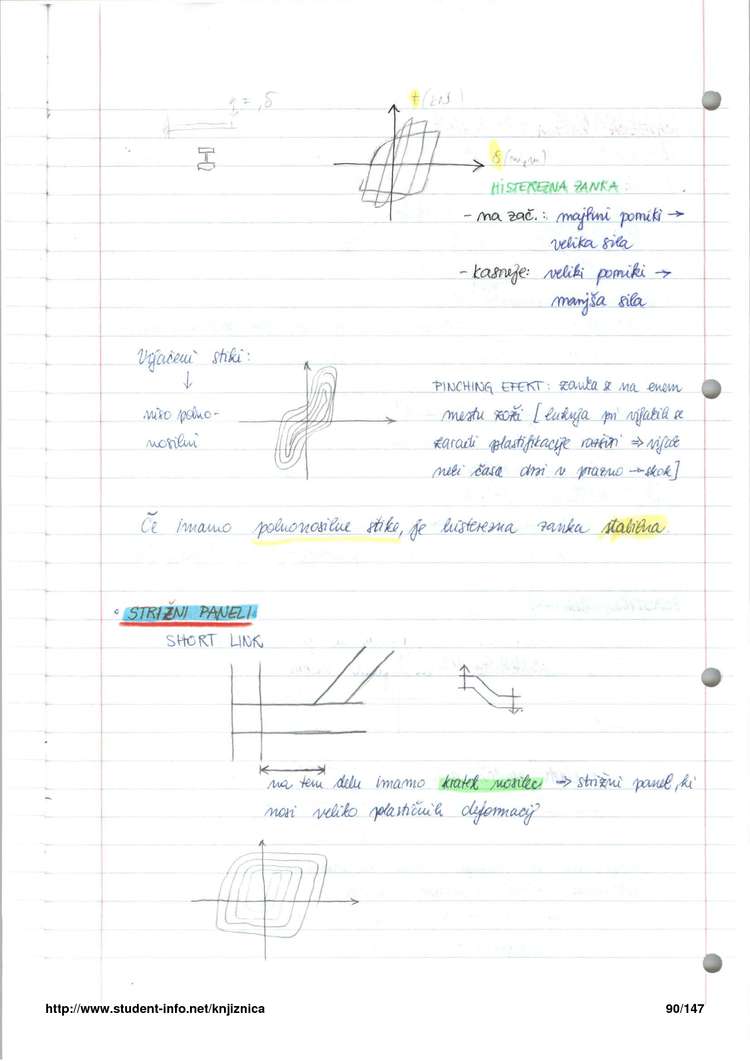 HISTEREZNA ZANKA:
- na zač.: majhni pomiki →
velika sila
- kasneje: veliki pomiki →
manjša sila
Vijačeni stiki:
↓
niso polno-
nosilni
PINCHING EFEKT: zanka se na enem
mestu zoži [luknja pri vijakih se
zaradi plastifikacije razširi ⇒ vijak
nekaj časa drsi v prazno → skok]
Če imamo polnonosilne stike, je histerezna zanka stabilna.
STRIŽNI PANELI
SHORT LINK
na tem delu imamo kratek nosilec → strižni panel, ki
nosi veliko plastičnih deformacij
http://www.student-info.net/knjiznica
90/147